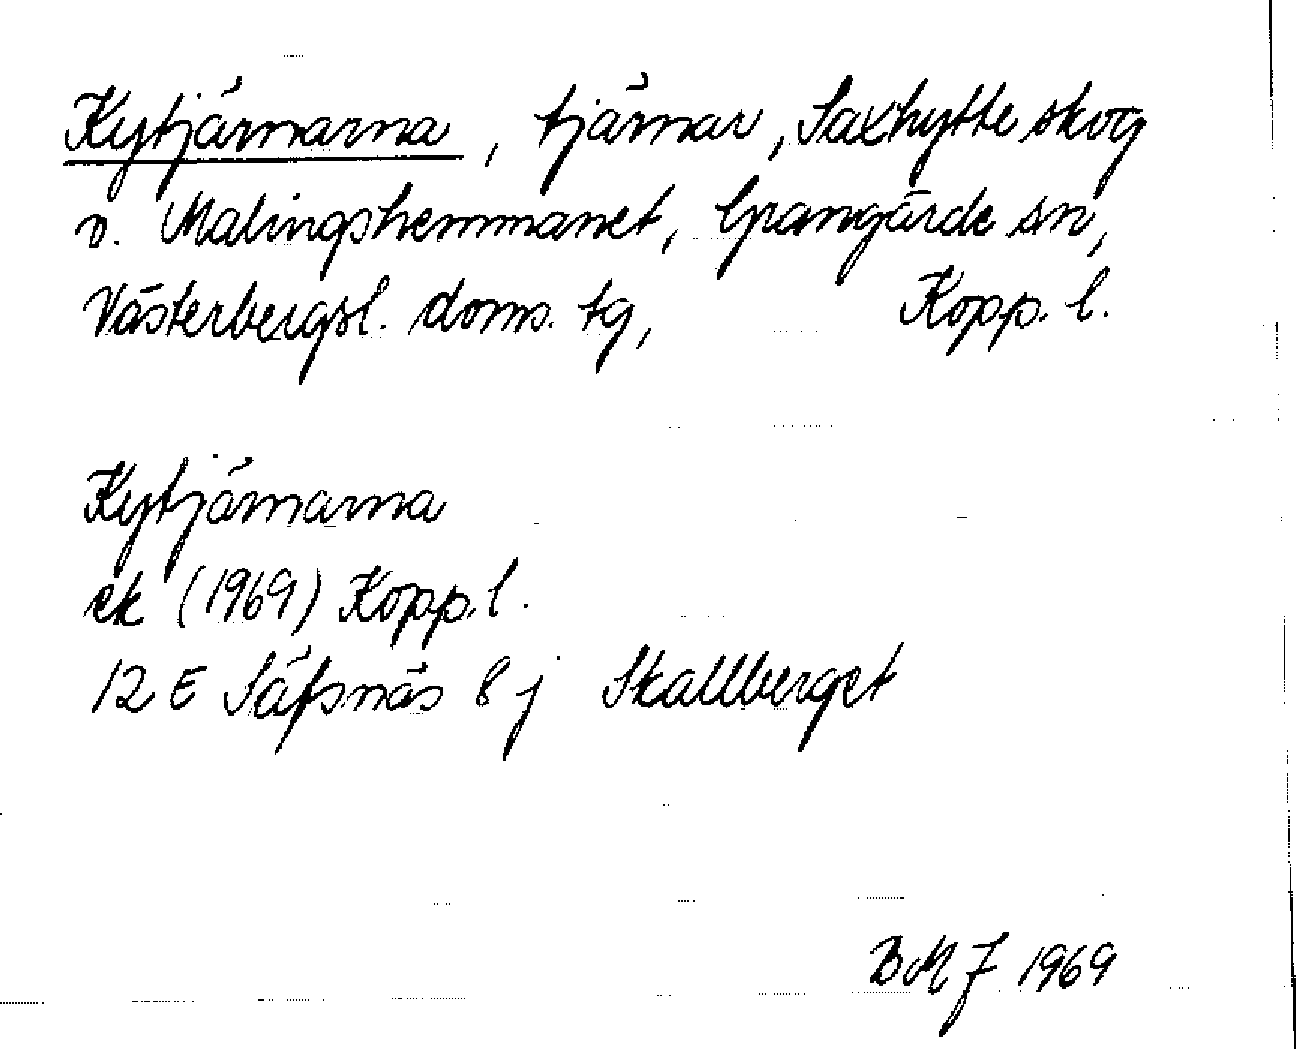 Kytjärnarna, tjärnar, Saxhytte skog
v. Malingshemmanet, Grangärde sn,
Västerbergsl. doms. tg, Kopp. l.
Kytjärnarna
ek (1969) Kopp. l.
12 E Säfsnäs 8 j Skallberget
BMJ 1969